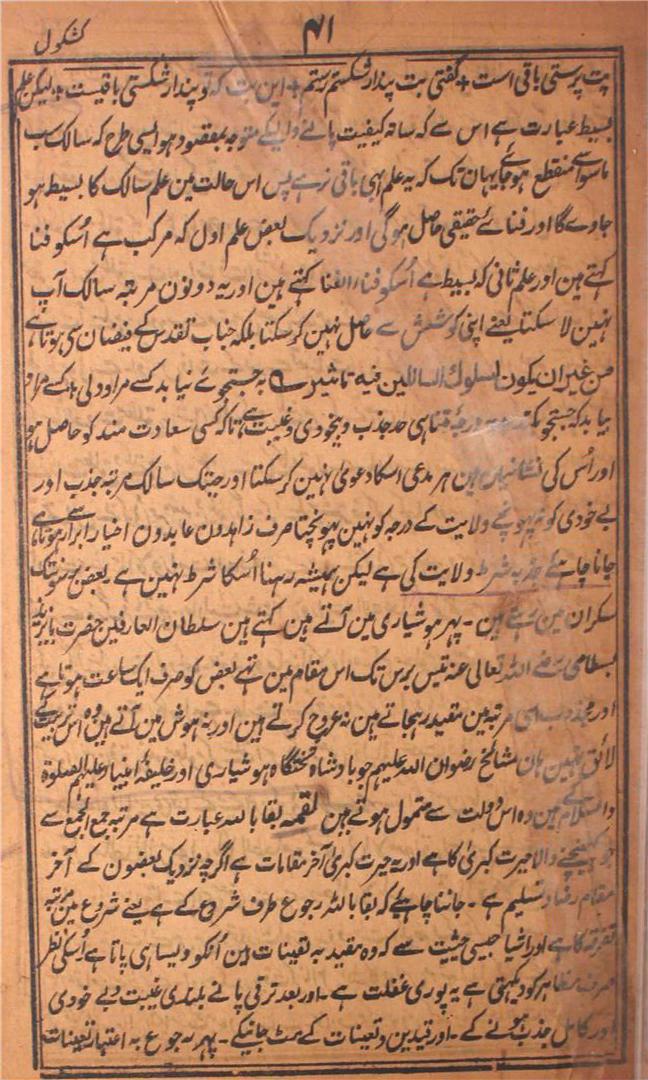 کشکول
۴۱
بت پرستی باقی است + گفتی بت پندار شکستم رستم + این بت که تو پندار شکستی باقیست + لیکن علم
بسیط عبارت ہے اس سے کہ ساتہ کیفیت پانے والیکے متوجہ بمقصود ہو ایسی طرح کہ سالک سب
ماسوا سے منقطع ہوجائے یہان تک کہ یہ علم بہی باقی نرہے پس اس حالت مین علم سالک کا بسیط ہو
جاوے گا اور فنائے حقیقی حاصل ہوگی اور نزدیک بعض علم اول کہ مرکب ہے اُسکو فنا
کہتے ہین اور علم ثانی کہ بسیط ہے اُسکو فناء الفنا کہتے ہین اور یہ دونون مرتبہ سالک آپ
نہین لا سکتا یعنے اپنی کوشش سے حاصل نہین کرسکتا بلکہ جناب تقدس کے فیضان سی ہوتا ہے
من غیر ان یکون لسلوک السالکین فیہ تاثیر بہ جستجوے نیابد کسے مراد ولی + کسے مراد
بیابد کہ جستجو حد جذب و بیخودی و غیبت ہے تاکہ کسی سعادت مند کو حاصل ہو
اور اُس کی نشانیان ہین ہر مدعی اسکا دعویٰ نہین کرسکتا اور جبتک سالک مرتبہ جذب اور
بے خودی کو نہ پہونچے ولایت کے درجہ کو نہین پہونچتا صرف زاہدون عابدون اخیار ابرار سے ہوتا ہے
جانا چاہئے جذبہ شرط ولایت کی ہے لیکن ہمیشہ رہنا اُسکا شرط نہین ہے بعض تک
سکران مین رہتے ہین ۔ پہر ہوشیاری مین آتے ہین کہتے ہین سلطان العارفین حضرت بایزید
بسطامی رضے اللہ تعالی عنہ تیس برس تک اس مقام مین تھے بعض کو صرف ایک ساعت ہوتا ہے
اور مجذوب اسی مرتبہ مین مقید رہجاتے ہین نہ عروج کرتے ہین اور نہ ہوش مین آتے ہین وہ اس تربیت کے
لائق نہین ہان مشائخ رضوان اللہ علیہم جو بادشاہ تختگاہ ہوشیاری اور خلیفہ انبیاء علیہم الصلوۃ
والسلام کے ہین وہ اس دولت سے متمول ہوتے ہین لقمہ بقا باللہ عبارت ہے مرتبہ جمع الجمع سے
جو کھینچنے والا حیرت کبریٰ کا ہے اور یہ حیرت کبریٰ آخر مقامات ہے اگرچہ نزدیک بعضون کے آخر
مقام رضا و تسلیم ہے ۔ جاننا چاہئے کہ بقا باللہ رجوع طرف شروع کے ہے یعنے شروع مین مرتبہ
تفرقہ کا ہے اور اشیا جیسی حیثیت سے کہ وہ مقید بہ تعینات ہین اُنکو ویسا ہی پاتا ہے اُسکی نظر
صرف مظاہر کو دیکہتی ہے یہ پوری غفلت ہے ۔ اور بعد ترقی پانے بلندی غیبت و بے خودی
اور کامل جذب ہونے کے ۔ اور قیدین و تعینات کے مٹ جانیکے ۔ پہر رجوع بہ اعتبار تعینات